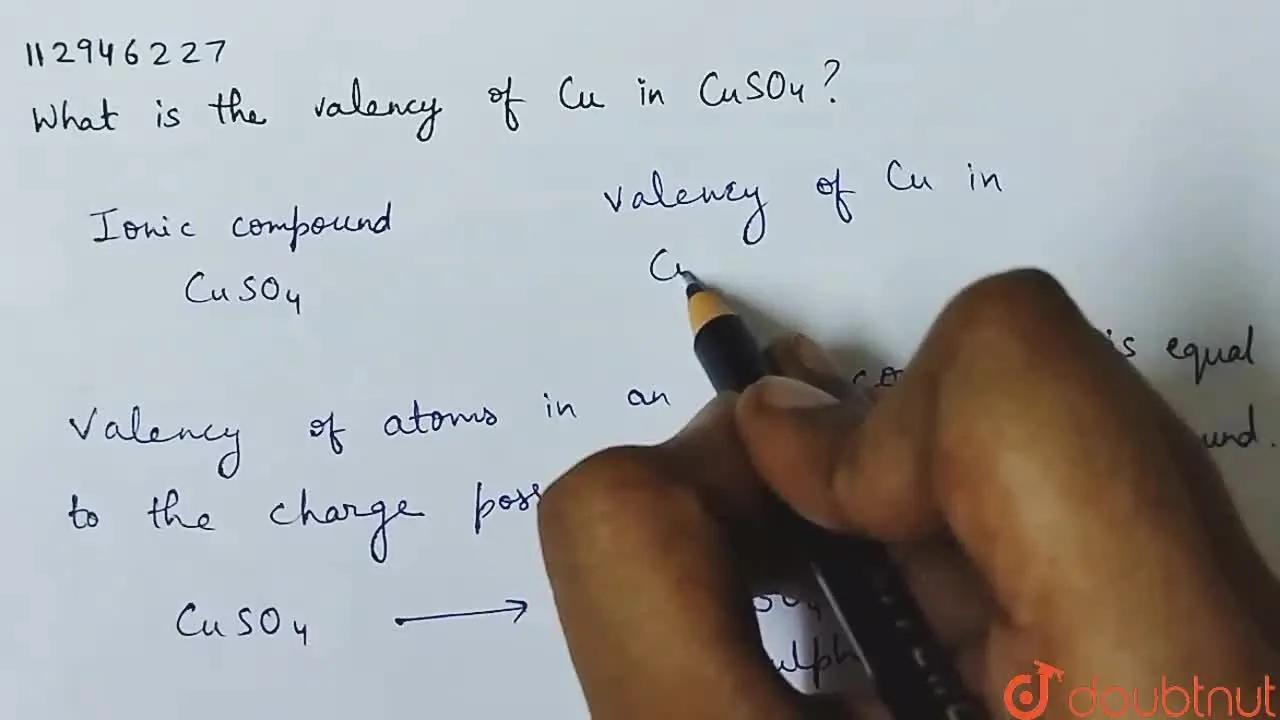 112946227
What is the valency of Cu in CuSO4?
Ionic compound
CuSO4
Valency of Cu in
Cu
Valency of atoms in an is equal
to the charge
CuSO4 →
doubtnut